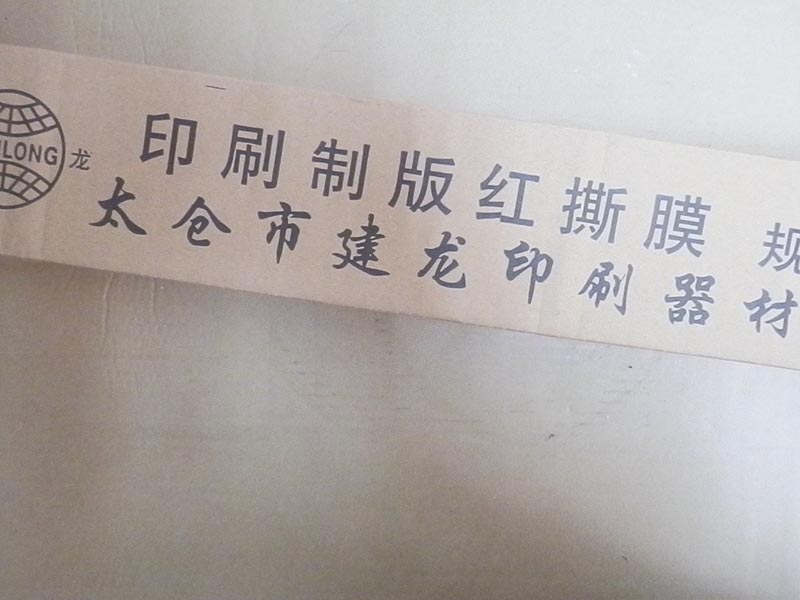 LONG 龙
印刷制版红撕膜 规
太仓市建龙印刷器材